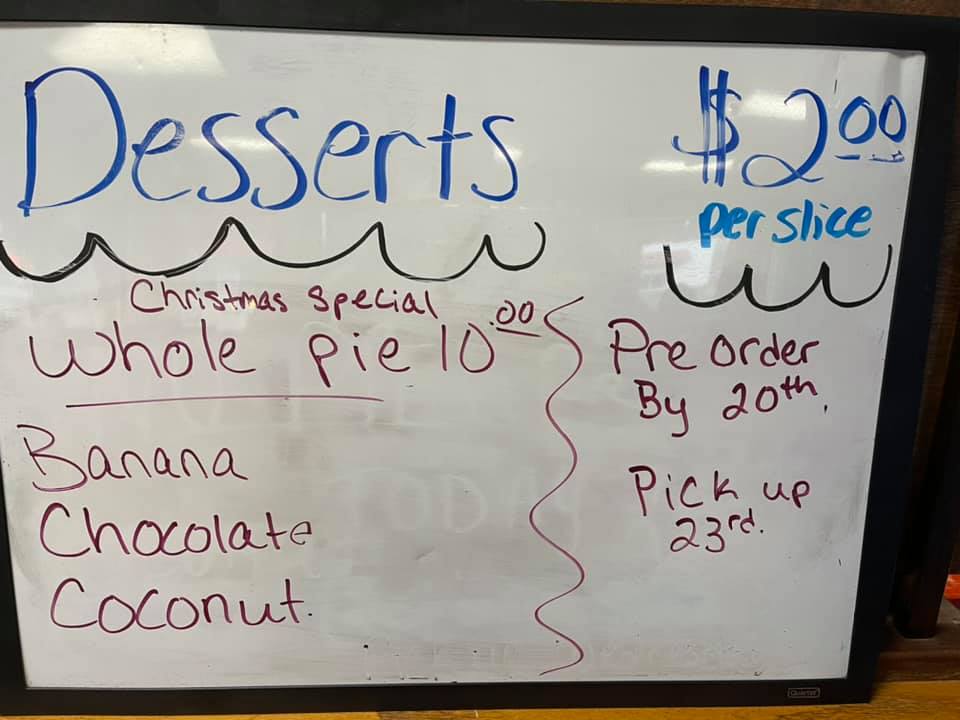 Desserts
$2.00
per slice
Christmas Special
Whole pie 10.00
Banana
Chocolate
Coconut.
Pre order
By 20th.
Pick up
23rd.
TODAY
Quartet